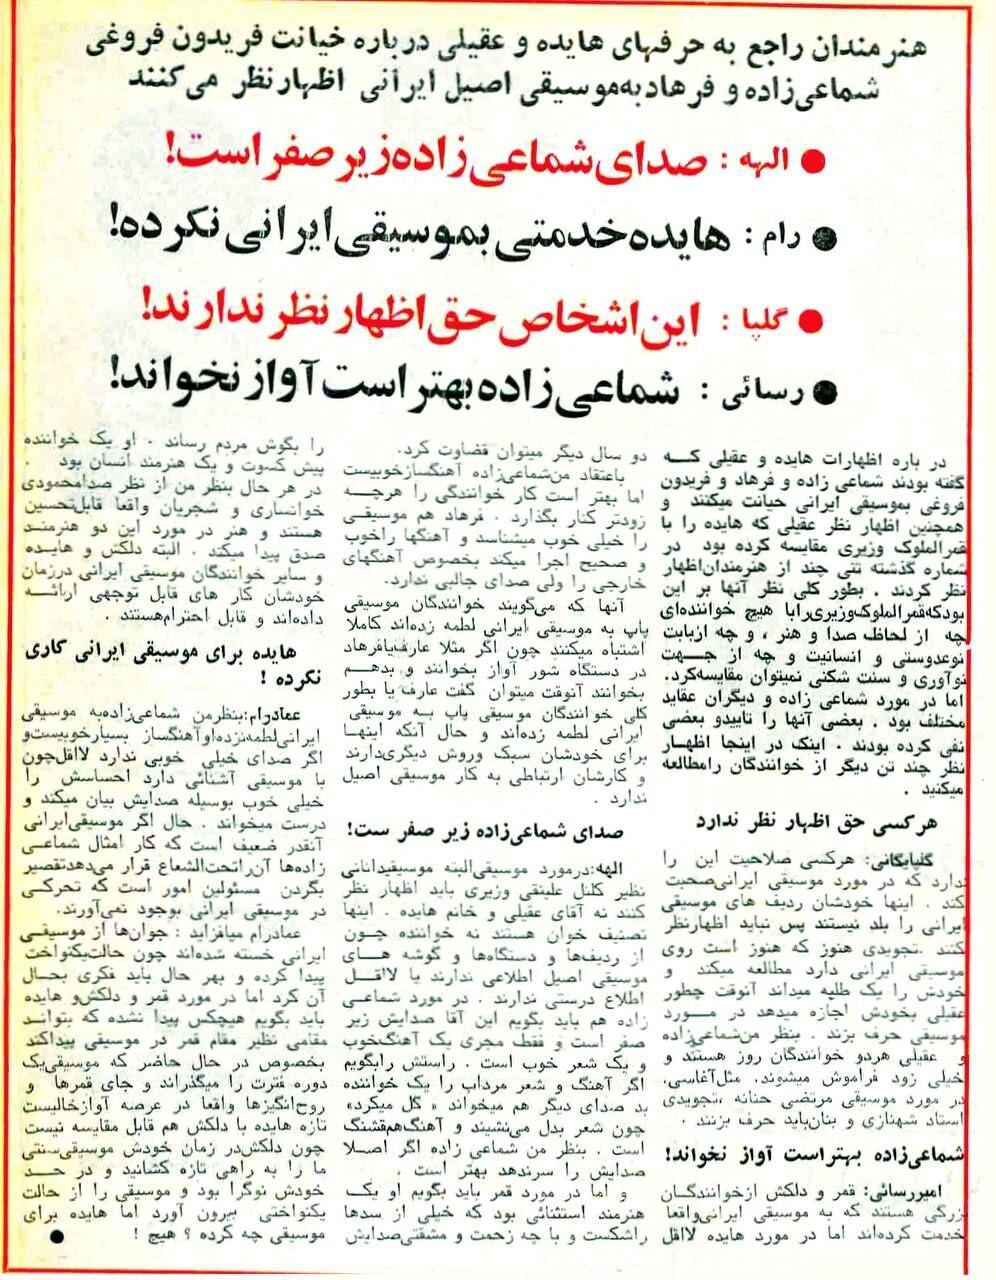 هنرمندان راجع به حرفهای هایده و عقیلی درباره خیانت فریدون فروغی
شماعی‌زاده و فرهاد به‌موسیقی اصیل ایرانی اظهارنظر می‌کنند
● الهه : صدای شماعی‌زاده زیر صفر است!
● رام : هایده خدمتی بموسیقی ایرانی نکرده!
● گلپا : این اشخاص حق اظهار نظر ندارند!
● رسائی : شماعی‌زاده بهتر است آواز نخواند!
در باره اظهارات هایده و عقیلی که
گفته بودند شماعی زاده و فرهاد و فریدون
فروغی بموسیقی ایرانی خیانت میکنند و
همچنین اظهار نظر عقیلی که هایده را با
قمرالملوک وزیری مقایسه کرده بود در
شماره گذشته تنی چند از هنرمندان اظهار
نظر کردند . بطور کلی نظر آنها بر این
بود که قمرالملوک وزیری را با هیچ خواننده‌ای
چه از لحاظ صدا و هنر ، و چه از بابت
نوعدوستی و انسانیت و چه از جهت
نوآوری و سنت شکنی نمیتوان مقایسه کرد.
اما در مورد شماعی زاده و دیگران عقاید
مختلف بود . بعضی آنها را تایید و بعضی
نفی کرده بودند . اینک در اینجا اظهار
نظر چند تن دیگر از خوانندگان را مطالعه
میکنید .
هرکسی حق اظهار نظر ندارد
گلپایگانی: هرکسی صلاحیت این را
ندارد که در مورد موسیقی ایرانی صحبت
کند . اینها خودشان ردیف های موسیقی
ایرانی را بلد نیستند پس نباید اظهارنظر
کنند .تجویدی هنوز که هنوز است روی
موسیقی ایرانی دارد مطالعه میکند و
خودش را یک طلبه میداند آنوقت چطور
عقیلی بخودش اجازه میدهد در مورد
موسیقی حرف بزند . بنظر من شماعی‌زاده
و عقیلی هردو خوانندگان روز هستند و
خیلی زود فراموش میشوند. مثل آغاسی.
در مورد موسیقی مرتضی حنانه ،تجویدی
استاد شهنازی و بنان باید حرف بزنند .
شماعی‌زاده بهتر است آواز نخواند!
امیررسائی: قمر و دلکش از خوانندگان
بزرگی هستند که به موسیقی ایرانی واقعا
خدمت کرده‌اند اما در مورد هایده لااقل
دو سال دیگر میتوان قضاوت کرد.
باعتقاد من شماعی‌زاده آهنگساز خوبیست
اما بهتر است کار خوانندگی را هرچه
زودتر کنار بگذارد . فرهاد هم موسیقی
را خیلی خوب میشناسد و آهنگها را خوب
و صحیح اجرا میکند بخصوص آهنگهای
خارجی را ولی صدای جالبی ندارد.
آنها که می‌گویند خوانندگان موسیقی
پاپ به موسیقی ایرانی لطمه زده‌اند کاملا
اشتباه میکنند چون اگر مثلا عارف یا فرهاد
در دستگاه شور آواز بخوانند و بد هم
بخوانند آنوقت میتوان گفت عارف یا بطور
کلی خوانندگان موسیقی پاپ به موسیقی
ایرانی لطمه زده‌اند و حال آنکه اینها
برای خودشان سبک و روش دیگری دارند
و کارشان ارتباطی به کار موسیقی اصیل
ندارد .
صدای شماعی‌زاده زیر صفر ست!
الهه: درمورد موسیقی البته موسیقیدانانی
نظیر کلنل علینقی وزیری باید اظهار نظر
کنند نه آقای عقیلی و خانم هایده . اینها
تصنیف خوان هستند نه خواننده چون
از ردیف‌ها و دستگاه‌ها و گوشه های
موسیقی اصیل اطلاعی ندارند یا لااقل
اطلاع درستی ندارند . در مورد شماعی
زاده هم باید بگویم این آقا صدایش زیر
صفر است و فقط مجری یک آهنگ خوب
و یک شعر خوب است . راستش را بگویم
اگر آهنگ و شعر مرداب را یک خواننده
بد صدای دیگر هم میخواند « گل میکرد»
چون شعر بدل می‌نشیند و آهنگ هم قشنگ
است . بنظر من شماعی زاده اگر اصلا
صدایش را سرندهد بهتر است .
و اما در مورد قمر باید بگویم او یک
هنرمند استثنائی بود که خیلی از سدها
را شکست و با چه زحمت و مشقتی صدایش
را بگوش مردم رساند . او یک خواننده
پیش کسوت و یک هنرمند انسان بود .
در هر حال بنظر من از نظر صدا محمودی
خوانساری و شجریان واقعا قابل تحسین
هستند و هنر در مورد این دو هنرمند
صدق پیدا میکند . البته دلکش و هایده
و سایر خوانندگان موسیقی ایرانی در زمان
خودشان کار های قابل توجهی ارائه
داده‌اند و قابل احترام هستند .
هایده برای موسیقی ایرانی کاری
نکرده !
عمادرام: بنظر من شماعی‌زاده به موسیقی
ایرانی لطمه نزده او آهنگساز بسیار خوبیست و
اگر صدای خیلی خوبی ندارد لااقل چون
با موسیقی آشنائی دارد احساسش را
خیلی خوب بوسیله صدایش بیان میکند و
درست میخواند . حال اگر موسیقی ایرانی
آنقدر ضعیف است که کار امثال شماعی
زاده‌ها آن را تحت الشعاع قرار می‌دهد تقصیر
بگردن مسئولین امور است که تحرکی
در موسیقی ایرانی بوجود نمی‌آورند.
عمادرام میافزاید : جوان‌ها از موسیقی
ایرانی خسته شده‌اند چون حالت یکنواخت
پیدا کرده و بهر حال باید فکری بحال
آن کرد اما در مورد قمر و دلکش و هایده
باید بگویم هیچکس پیدا نشده که بتواند
مقامی نظیر مقام قمر در موسیقی پیدا کند
بخصوص در حال حاضر که موسیقی یک
دوره فترت را میگذراند و جای قمرها و
روح‌انگیزها واقعا در عرصه آواز خالیست
تازه هایده با دلکش هم قابل مقایسه نیست
چون دلکش در زمان خودش موسیقی سنتی
ما را به راهی تازه کشانید و در حد
خودش نوگرا بود و موسیقی را از حالت
یکنواختی بیرون آورد اما هایده برای
موسیقی چه کرده ؟ هیچ ! ●